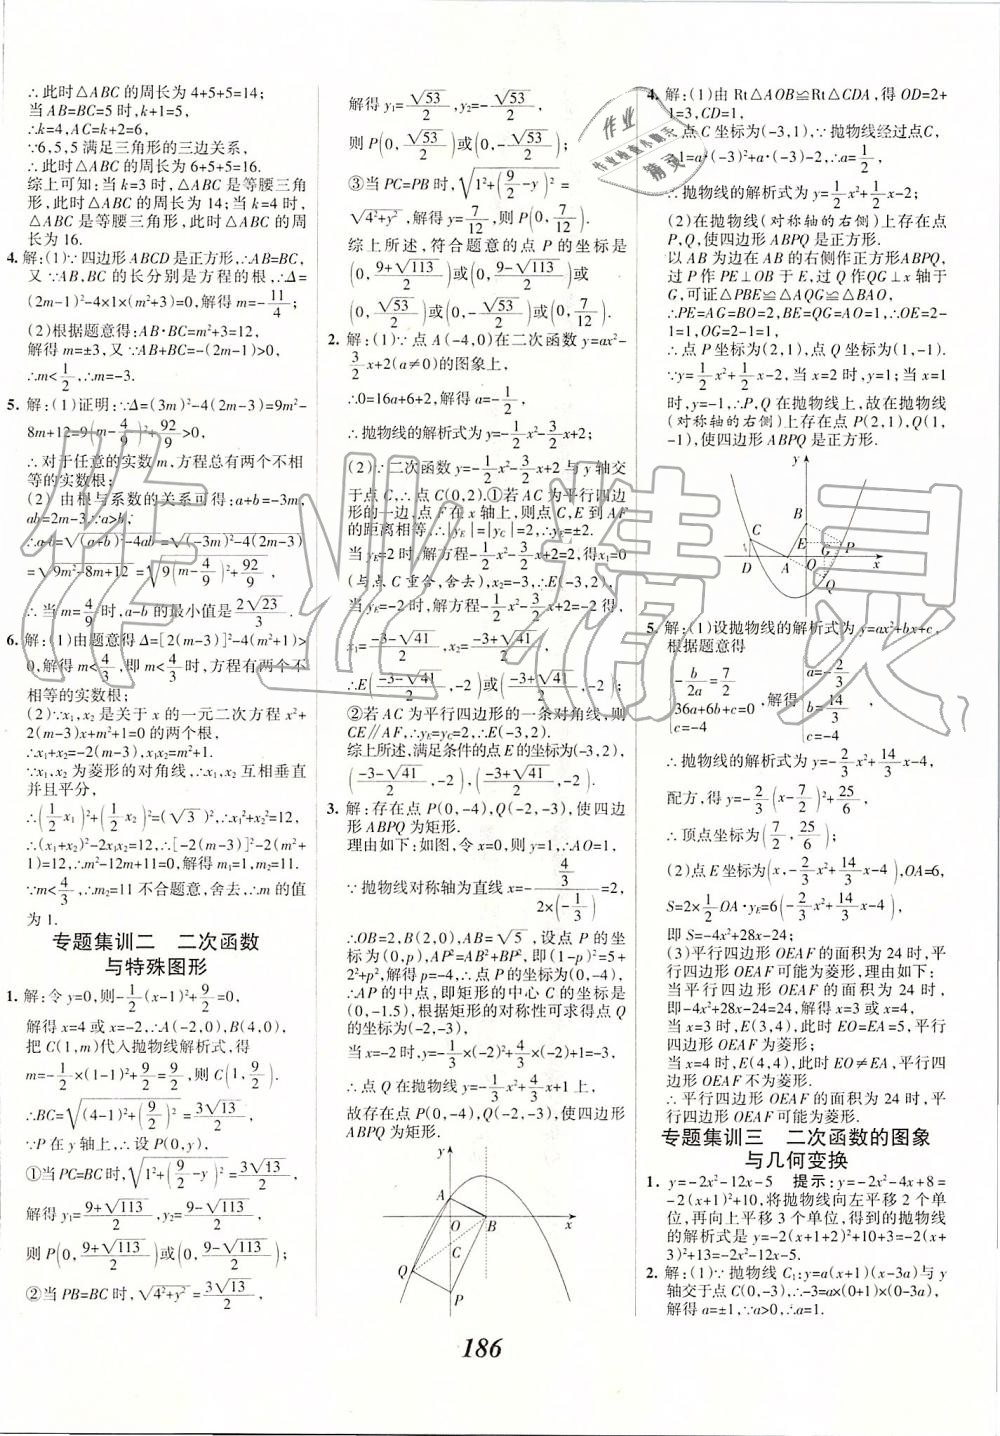 ∴此时△ABC的周长为4+5+5=14;
当AB=BC=5时,k+1=5,
∴k=4,AC=k+2=6,
∵6,5,5满足三角形的三边关系,
∴此时△ABC的周长为6+5+5=16.
综上可知:当k=3时,△ABC是等腰三角
形,此时△ABC的周长为14;当k=4时,
△ABC是等腰三角形,此时△ABC的周
长为16.
4.解:(1)∵四边形ABCD是正方形,∴AB=BC,
又∵AB,BC的长分别是方程的根,∴Δ=
(2m-1)²-4×1×(m²+3)=0,解得m=-11/4;
(2)根据题意得:AB·BC=m²+3=12,
解得m=±3,又∵AB+BC=-(2m-1)>0,
∴m<1/2,∴m=-3.
5.解:(1)证明:∵Δ=(3m)²-4(2m-3)=9m²-
8m+12=9(m-4/9)²+92/9>0,
∴对于任意的实数m,方程总有两个不相
等的实数根;
(2)由根与系数的关系可得:a+b=-3m,
ab=2m-3∵a>b,
∴a-b=√((a+b)²-4ab)=√((-3m)²-4(2m-3))
=√(9m²-8m+12)=√(9(m-4/9)²+92/9),
∴当m=4/9时,a-b的最小值是2√23/3.
6.解:(1)由题意得Δ=[2(m-3)]²-4(m²+1)>
0,解得m<4/3,即m<4/3时,方程有两个不
相等的实数根;
(2)∵x₁,x₂是关于x的一元二次方程x²+
2(m-3)x+m²+1=0的两个根,
∴x₁+x₂=-2(m-3),x₁x₂=m²+1.
∵x₁,x₂为菱形的对角线,∴x₁,x₂互相垂直
并且平分,
∴(1/2x₁)²+(1/2x₂)²=(√3)²,∴x₁²+x₂²=12,
∴(x₁+x₂)²-2x₁x₂=12,∴[-2(m-3)]²-2(m²+
1)=12,∴m²-12m+11=0,解得m₁=1,m₂=11.
∵m<4/3,∴m₂=11不合题意,舍去,∴m的值
为1.
专题集训二 二次函数
与特殊图形
1.解:令y=0,则-1/2(x-1)²+9/2=0,
解得x=4或x=-2,∴A(-2,0),B(4,0),
把C(1,m)代入抛物线解析式,得
m=-1/2×(1-1)²+9/2=9/2,则C(1,9/2).
∴BC=√((4-1)²+(9/2)²)=3√13/2,
∵P在y轴上,∴设P(0,y),
①当PC=BC时,√(1²+(9/2-y)²)=3√13/2,
解得y₁=(9+√113)/2,y₂=(9-√113)/2,
则P(0,(9+√113)/2)或(0,(9-√113)/2);
②当PB=BC时,√(4²+y²)=3√13/2,
解得y₁=√53/2,y₂=-√53/2,
则P(0,√53/2)或(0,-√53/2);
③当PC=PB时,√(1²+(9/2-y)²)=
√(4²+y²),解得y=7/12,则P(0,7/12).
综上所述,符合题意的点P的坐标是
(0,(9+√113)/2)或(0,(9-√113)/2)或
(0,√53/2)或(0,-√53/2)或(0,7/12).
2.解:(1)∵点A(-4,0)在二次函数y=ax²-
3/2x+2(a≠0)的图象上,
∴0=16a+6+2,解得a=-1/2,
∴抛物线的解析式为y=-1/2x²-3/2x+2;
(2)∵二次函数y=-1/2x²-3/2x+2与y轴交
于点C,∴点C(0,2).①若AC为平行四边
形的一边,点F在x轴上,则点C,E到AF
的距离相等,∴|yE|=|yC|=2,∴yE=±2.
当yE=2时,解方程-1/2x²-3/2x+2=2,得x₁=0
(与点C重合,舍去),x₂=-3,∴E(-3,2),
当yE=-2时,解方程-1/2x²-3/2x+2=-2得,
x₁=(-3-√41)/2,x₂=(-3+√41)/2,
∴E((-3-√41)/2,-2)或((-3+√41)/2,-2);
②若AC为平行四边形的一条对角线,则
CE∥AF,∴yE=yC=2,∴E(-3,2).
综上所述,满足条件的点E的坐标为(-3,2),
((-3-√41)/2,-2),((-3+√41)/2,-2).
3.解:存在点P(0,-4),Q(-2,-3),使四边
形ABPQ为矩形.
理由如下:如图,令x=0,则y=1,∴AO=1,
∵抛物线对称轴为直线x=-(4/3)/(2×(-1/3))=2,
∴OB=2,B(2,0),AB=√5,设点P的坐标
为(0,p),AP²=AB²+BP²,即(1-p)²=5+
2²+p²,解得p=-4,则P(0,-4),
∴AP的中点,即矩形的中心C的坐标为
(0,-1.5),根据矩形的对称性可求得点Q
的坐标为(-2,-3),
当x=-2时,y=-1/3×(-2)²+4/3×(-2)+1=-3,
∴点Q在抛物线y=-1/3x²+4/3x+1上,
故存在点P(0,-4),Q(-2,-3),使四边形
ABPQ为矩形.
y
A
O
B
x
C
Q
P
4.解:(1)由Rt△AOB≌Rt△CDA,得OD=2+
1=3,CD=1,
∴点C坐标为(-3,1),∵抛物线经过点C,
∴1=a·(-3)²+a·(-3)-2,a=1/2,
∴抛物线的解析式为y=1/2x²+1/2x-2;
(2)在抛物线(对称轴的右侧)上存在点
P,Q,使四边形ABPQ是正方形.
以AB为边在AB的右侧作正方形ABPQ,
过P作PE⊥OB于E,过Q作QG⊥x轴于
G,可证△PBE≌△AQG≌△BAO,
∴PE=AG=BO=2,BE=QG=AO=1,∴OE=2-
1=1,OG=2-1=1,
∴点P坐标为(2,1),点Q坐标为(1,-1).
∵y=1/2x²+1/2x-2,当x=2时,y=1;当x=1
时,y=-1,∴P,Q在抛物线上,故在抛物线
(对称轴的右侧)上存在点P(2,1),Q(1,
-1),使四边形ABPQ是正方形.
y
B
C
E
P
G
D
A
x
Q
5.解:(1)设抛物线的解析式为y=ax²+bx+c,
根据题意得
{-b/2a=7/2, 36a+6b+c=0, c=-4 解得{a=-2/3, b=14/3, c=-4
∴抛物线的解析式为y=-2/3x²+14/3x-4,
配方,得y=-2/3(x-7/2)²+25/6,
∴顶点坐标为(7/2,25/6);
(2)点E坐标为(x,-2/3x²+14/3x-4),OA=6,
S=2×1/2OA·yE=6(-2/3x²+14/3x-4),
即S=-4x²+28x-24;
(3)平行四边形OEAF的面积为24时,平
行四边形OEAF可能为菱形,理由如下:
当平行四边形OEAF的面积为24时,
即-4x²+28x-24=24,解得x=3或x=4,
当x=3时,E(3,4),此时EO=EA=5,平行
四边形OEAF为菱形;
当x=4时,E(4,4),此时EO≠EA,平行四
边形OEAF不为菱形.
∴平行四边形OEAF的面积为24时,平
行四边形OEAF可能为菱形.
专题集训三 二次函数的图象
与几何变换
1. y=-2x²-12x-5 提示:y=-2x²-4x+8=
-2(x+1)²+10,将抛物线向左平移2个单
位,再向上平移3个单位,得到的抛物线
的解析式是y=-2(x+1+2)²+10+3=-2(x+
3)²+13=-2x²-12x-5.
2.解:(1)∵抛物线C₁:y=a(x+1)(x-3a)与y
轴交于点C(0,-3),∴-3=a×(0+1)×(0-3a),
解得a=±1,∵a>0,∴a=1.
186
作业精灵
作业
作业检查小助手
精灵